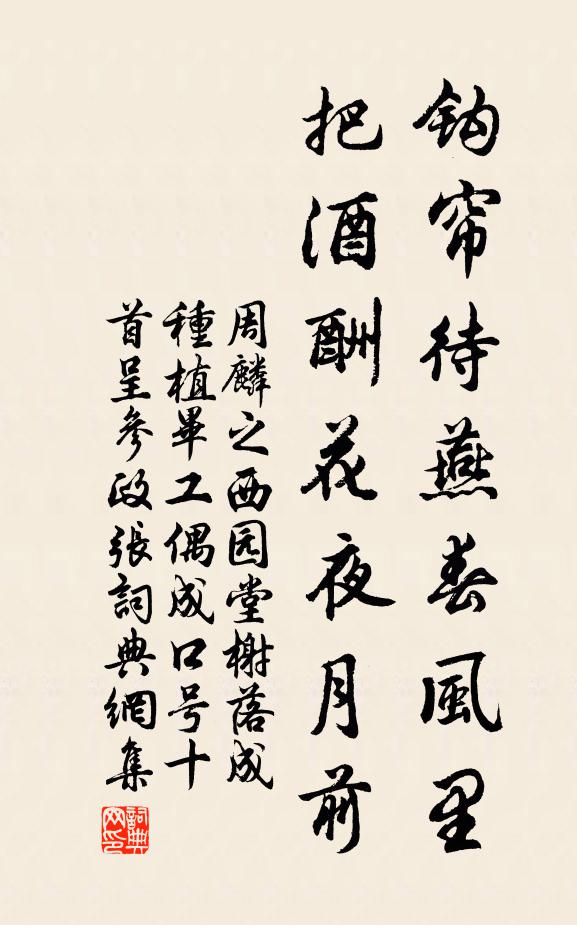 钩帘待燕春風里
把酒酬花夜月前
周麟之西园堂榭落成
種植畢工偶成口号十
首呈參政張詞典網集
詞典网印